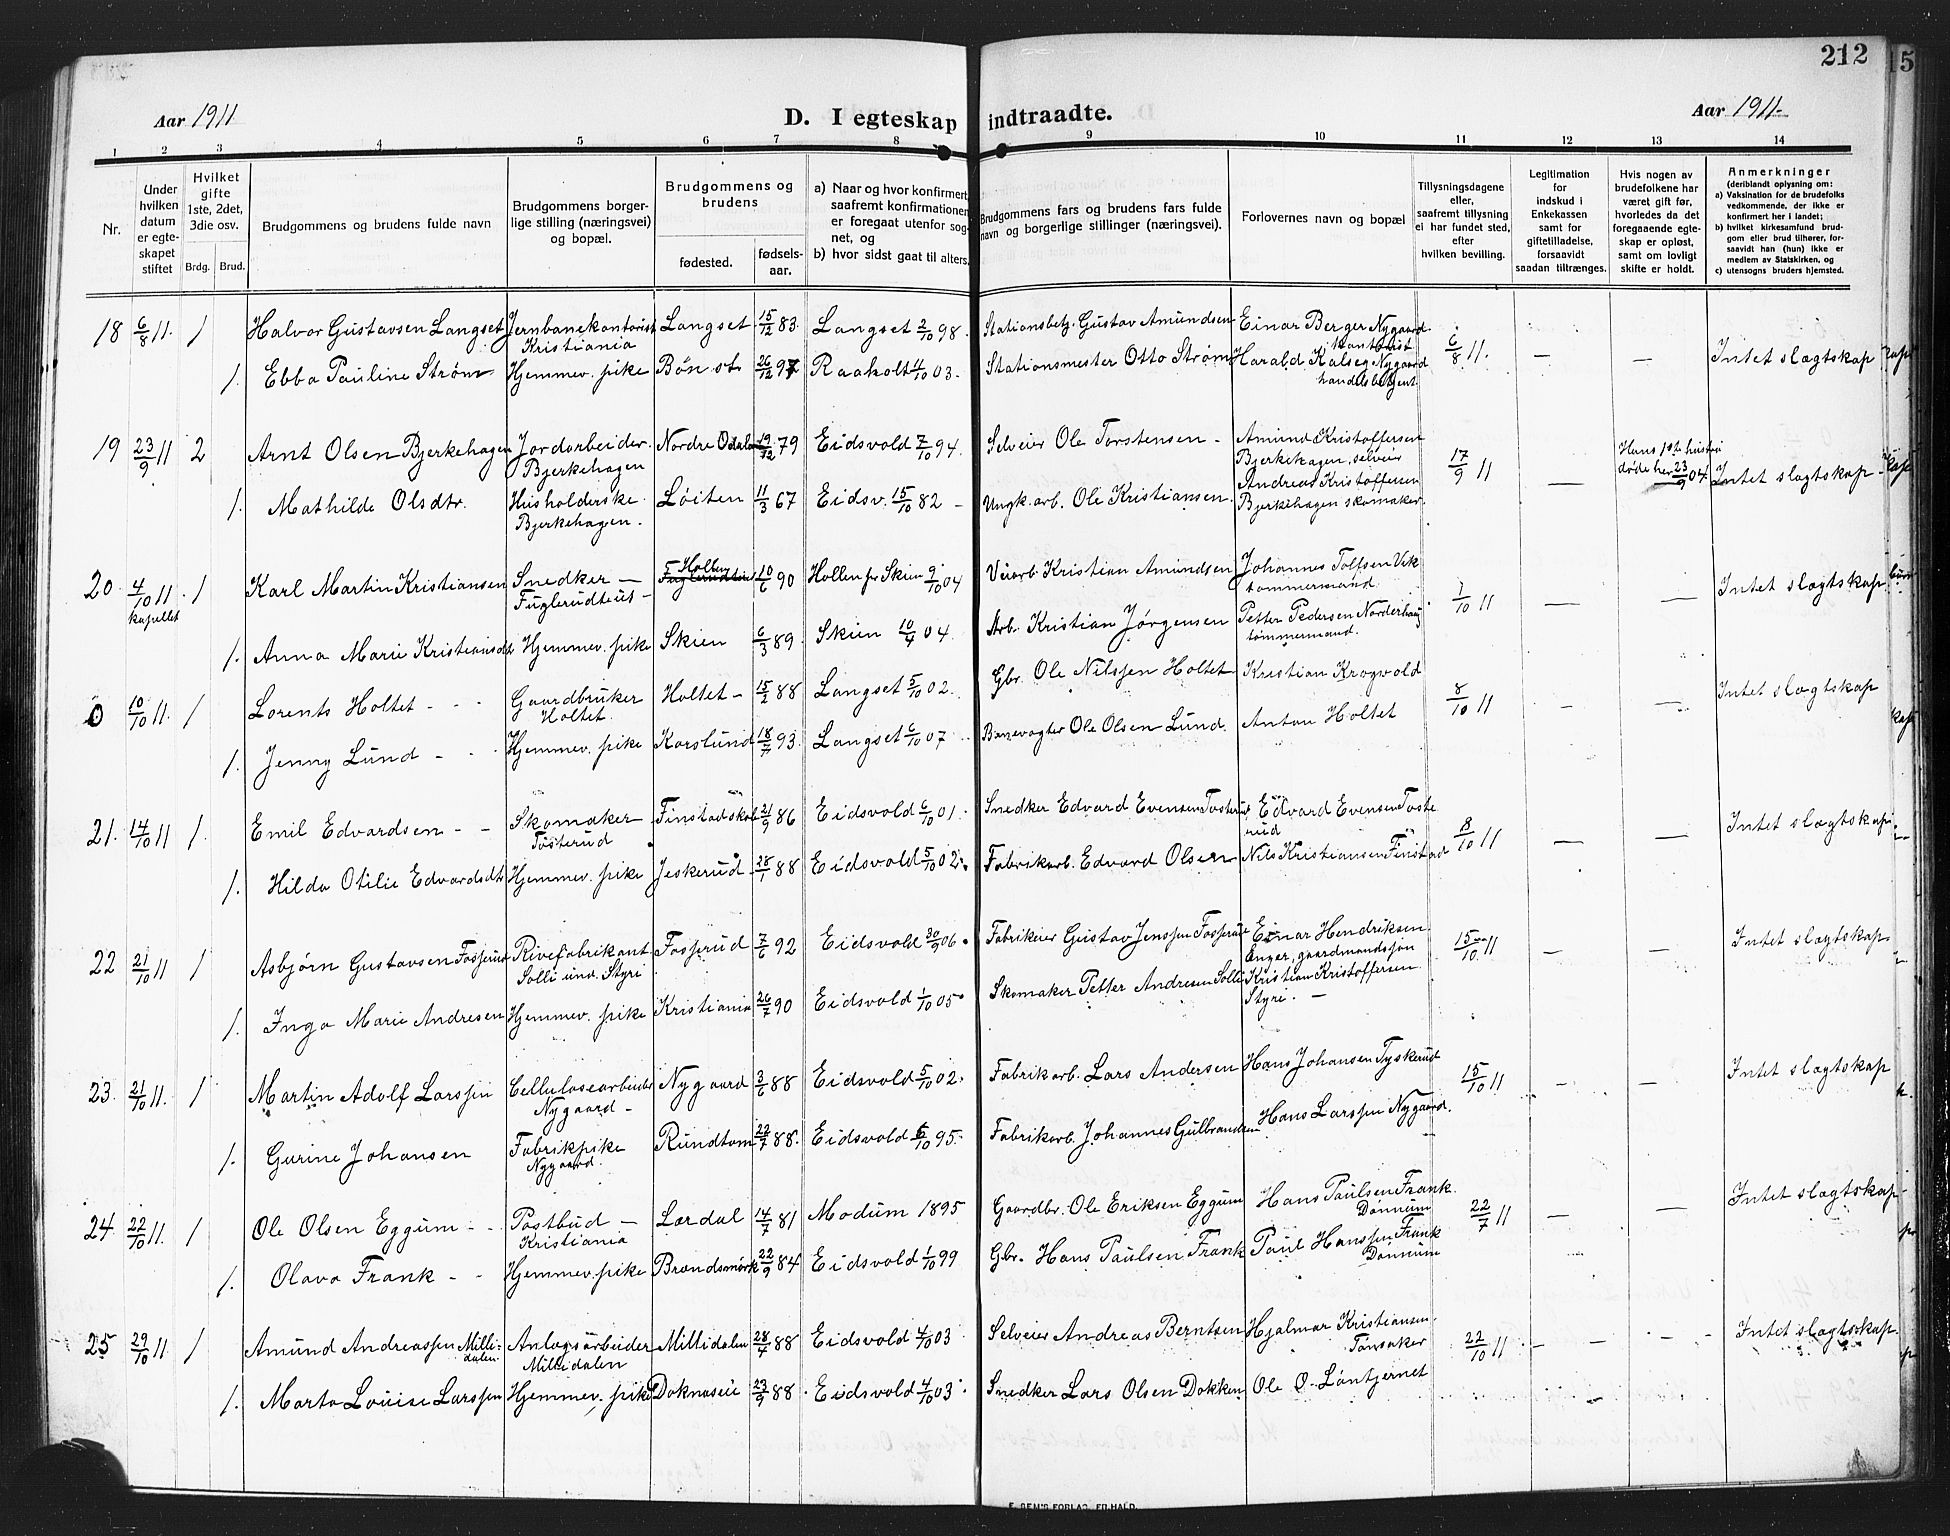 212
15
Aar 1911
D. I egteskap indtraadte.
Aar 1911-
1 2 3 4 5 6 7 8 9 10 11 12 13 14
Nr.
Under hvilken datum er egteskapet stiftet
Hvilket gifte 1ste, 2det, 3die osv.
Brdg. Brud.
Brudgommens og brudens fulde navn
Brudgommens borgerlige stilling (næringsvei) og bopæl.
Brudgommens og brudens
fødested.
fødselsaar.
a) Naar og hvor konfirmert, saafremt konfirmationen er foregaat utenfor sognet, og
b) hvor sidst gaat til alters.
Brudgommens fars og brudens fars fulde navn og borgerlige stillinger (næringsvei).
Forlovernes navn og bopæl
Tillysningsdagene eller, saafremt tillysning ei har fundet sted, efter hvilken bevilling.
Legitimation for indskud i Enkekassen samt for giftetilladelse, forsaavidt saadan tiltrænges.
Hvis nogen av brudefolkene har været gift før, hvorledes da det foregaaende egteskap er opløst, samt om lovligt skifte er holdt.
Anmerkninger
(deriblandt oplysning om:
a) Vaksination for de brudefolks vedkommende, der ikke er konfirmert her i landet;
b) hvilket kirkesamfund brudgom eller brud tilhører, forsaavidt han (hun) ikke er medlem av Statskirken, og
c) utensogns bruders hjemsted.
18 6/8 11. 1 Halvor Gustavsen Langset Jernbanekontorist Kristiania Langset 15/12 83. Langset 2/10 98. Stationsbetj. Gustav Amundsen Einar Berger Nygaard kontorist 6/8 11. — — Intet slægtskap
1. Ebba Pauline Strøm Hjemmev. pike Bøn st. 26/12 87 Raaholt 4/10 03. Stationsmester Otto Strøm Harald Kalseg Nygaard handelsbetjent
19 23/9 11 2 Arnt Olsen Bjerkehagen Jordarbeider. Bjerkehagen Nordre Odalen 19/12 79 Eidsvold 7/10 94. Selveier Ole Torstensen - Amund Kristoffersen Bjerkehagen, selveier 17/9 11 — Hans 1ste hustru døde her 23/9 04. Intet slægtskap
1. Mathilde Olsdtr. Husholderske. Bjerkehagen. Løiten 11/3 67 Eidsv. 15/10 82 - Ungk. arb. Ole Kristiansen. Andreas Kristoffersen Bjerkehagen skomaker.
20. 4/10 11 kapellet 1 Karl Martin Kristiansen Snedker — Fuglerudteiet - Hollen 10/6 90 Hollen pr Skien 9/10 04 Kristian Amundsen Johannes Tolfsen Vik tømmermand 1/10 11 — — Intet slægtskap
1. Anna Marie Kristiansdt Hjemmev. pike Skien 6/3 89. Skien 10/4 04. Arb. Kristian Jørgensen Petter Pedersen Norderhaug tømmermand.
0 10/10 11. 1 Lorents Holtet - - - Gaardbruker Holtet. Holtet - 15/2 88 Langset 5/10 02. Gbr. Ole Nilssen Holtet Kristian Krogvold 8/10 11 - — Intet slægtskap
1. Jenny Lund - - - Hjemmev. pike Korslund 18/7 93. Langset 6/10 07 Banevogter Ole Olsen Lund. Anton Holtet
21. 14/10 11 1. Emil Edvardsen - - Skomaker Tosterud Finstadskob 21/9 86 Eidsvold 6/10 01. Snedker Edvard Evensen Tosterud Edvard Evensen Tosterud 8/10 11 — — Intet slægtskap
1. Hilda Otilie Edvardsdtr Hjemmev. pike Jeskerud 28/1 88 Eidsvold 5/10 02. Fabrikarb. Edvard Olsen Nils Kristiansen Finstad
22 21/10 11 1 Asbjørn Gustavsen Fosserud Rivefabrikant Solli ind. Styri Fosserud 7/6 92 Eidsvold 30/9 06. Fabrikeier Gustav Jenssen Fosserud Einar Hendriksen Enger, gaardmandssøn 15/10 11 — — Intet slægtskap.
1. Inga Marie Andresen Hjemmev. pike Kristiania 26/7 90 Eidsvold 1/10 05. Skomaker Petter Andresen Solli Kristian Kristoffersen Styri. —
23. 21/10 11. 1 Martin Adolf Larssen Cellulosearbeider Nygaard - Nygaard 3/6 88 Eidsvold 5/10 02. Fabrikarb. Lars Andersen Hans Johansen Tyskerud 15/10 11 - — Intet slægtskap
1. Gurine Johansen Fabrikpike Nygaard. Rundtom 22/7 88. Eidsvold 6/10 95. Fabrikarb. Johannes Gulbrandsen Hans Larssen Nygaard.
24. 22/10 11. 1 Ole Olsen Eggum - - Postbud — Kristiania Lærdal 14/7 81 Modum 1895 Gaardbr. Ole Eriksen Eggum Hans Paulsen Frank Dønnum 22/7 11 — — Intet slægtskap
1. Olava Frank - - Hjemmev. pike Brandsmørk 22/9 84 Eidsvold 1/10 99 Gbr. Hans Paulsen Frank Paul Hanssen Frank Dønnum
25 29/10 11 1 Amund Andreassen Millidalen Anlægsarbeider Millidalen Millidalen 28/4 88 Eidsvold 4/10 03. Selveier Andreas Berntsen Hjalmar Kristiansen Tonsaker 22/10 11. — - Intet slægtskap
1. Marta Louise Larssen Hjemmev. pike Doknaseie 23/9 88. Eidsvold 4/10 03. Snedker Lars Olsen Dokken Ole O. Løntjernet